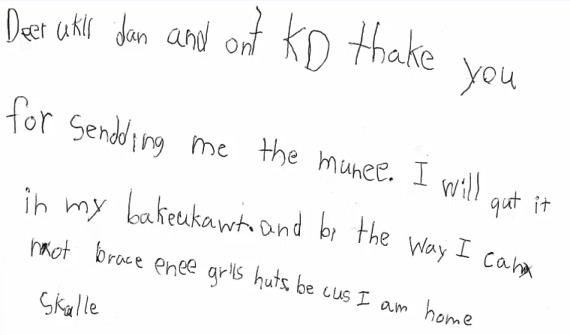 Deer ukll dan and ont KD thake you
for sendding me the munee. I will qut it
in my bakeukawt. and bi the way I can
not brace enee grlls huts. be cus I am home
Skalle